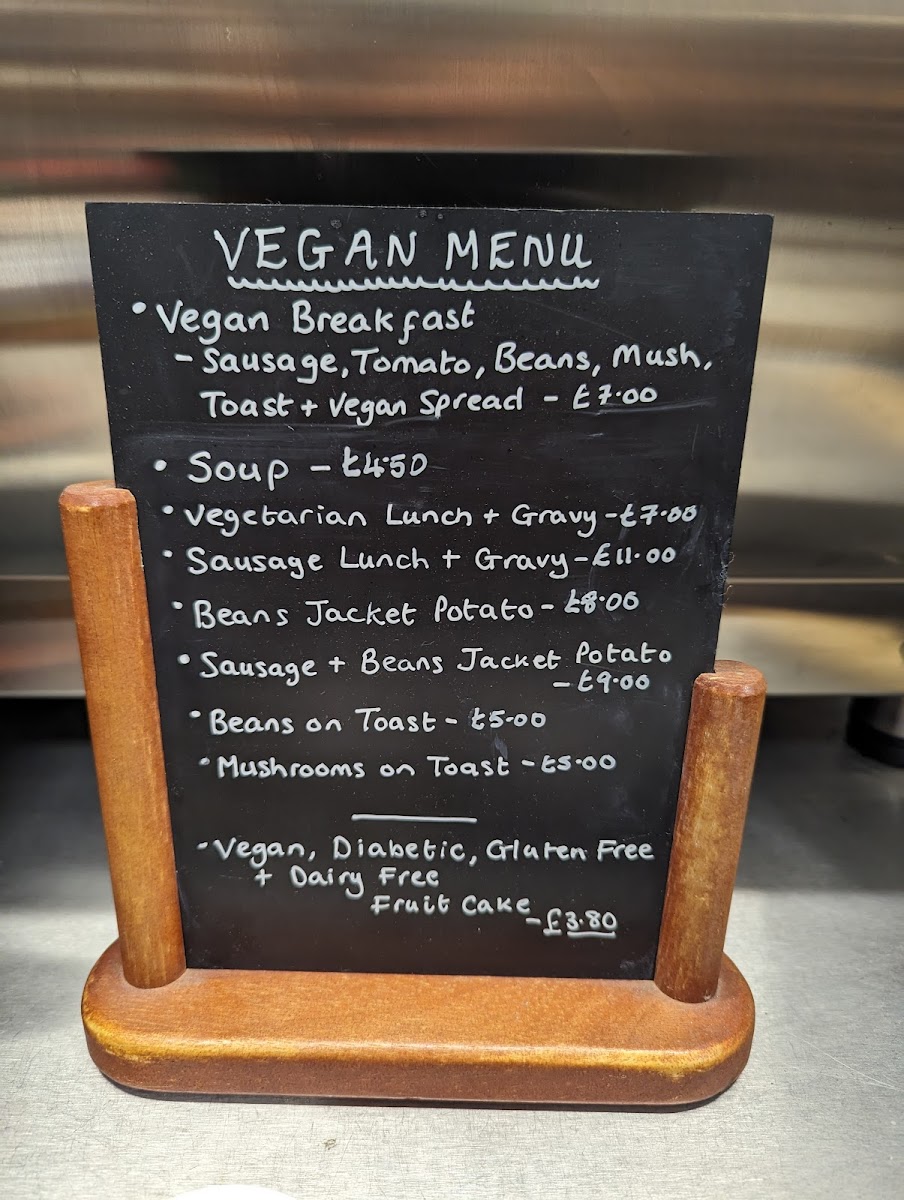 VEGAN MENU
• Vegan Breakfast
- Sausage, Tomato, Beans, Mush,
Toast + Vegan Spread - £7.00
• Soup - £4.50
• Vegetarian Lunch + Gravy - £7.00
• Sausage Lunch + Gravy - £11.00
• Beans Jacket Potato - £8.00
• Sausage + Beans Jacket Potato
- £9.00
• Beans on Toast - £5.00
• Mushrooms on Toast - £5.00
- Vegan, Diabetic, Gluten Free
+ Dairy Free
Fruit Cake
- £3.80